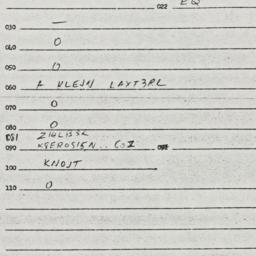 022 EQ
030 —
040 0
050 0
060 A KLEJN LAYTERL
070 0
080 0
081 ZIHLIBSR
090 KSEROSIEN..
100 KNOJT
110 0